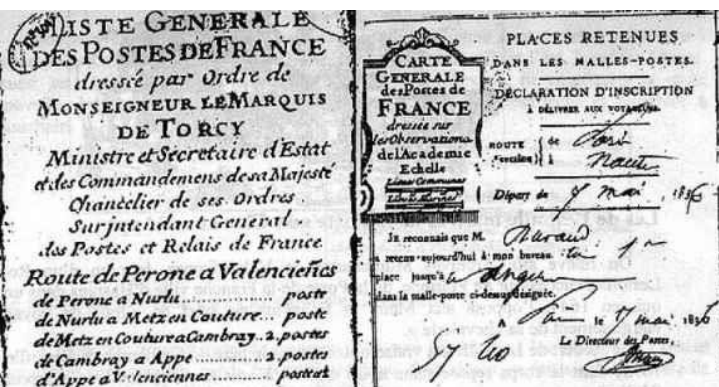 LISTE GENERALE
DES POSTES DE FRANCE
dressée par Ordre de
MONSEIGNEUR LE MARQUIS
DE TORCY
Ministre et Sécretaire d'Estat
et des Commandemens de sa Majesté
Chancelier de ses Ordres
Surjntendant General
des Postes et Relais de France
Route de Perone a Valencieñes
de Perone a Nurlu............poste
de Nurlu a Metz en Couture...poste
de Metz en Couture a Cambray..2.postes
de Cambray a Appe.......2.postes
d'Appe a Valenciennes.........poste
CARTE
GENERALE
des Postes de
FRANCE
dressée sur
les Observations
de l'Academie
Echelle
Lieues Communes
PLACES RETENUES
DANS LES MALLES-POSTES.
DÉCLARATION D'INSCRIPTION
À DÉLIVRER AUX VOYAGEURS.
ROUTE de Paris
à
Départ du 7 mai, 1836
Je reconnais que M.
a retenu aujourd'hui à mon bureau
place jusqu'à
dans la malle-poste ci-dessus désignée.
A le mai 1836
Le Directeur des Postes,